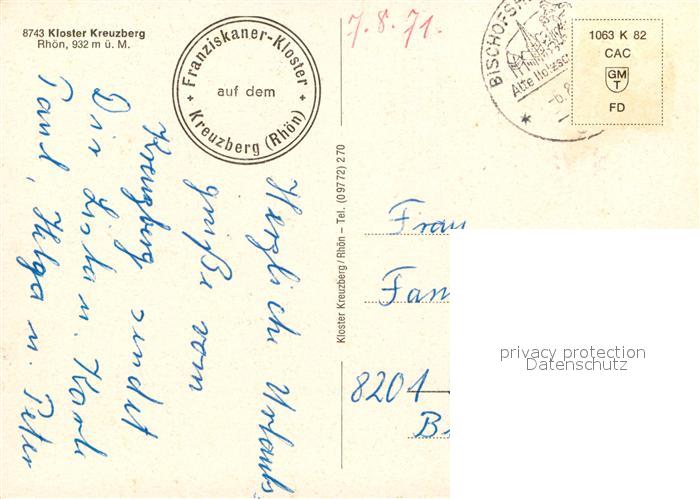 8743 Kloster Kreuzberg
Rhön, 932 m ü. M.
+ Franziskaner-Kloster +
auf dem
Kreuzberg (Rhön)
7.8.71.
BISCHOFSH
Alte Holzsc
-6.8
1063 K 82
CAC
GM
T
FD
Herzliche Urlaubs-
grüße vom
Kreuzberg sendet
Dir Lisl u. Karle
Tant, Helga u. Peter
Kloster Kreuzberg/Rhön – Tel. (09772) 270
Frau
Fan
8201
B
privacy protection
Datenschutz